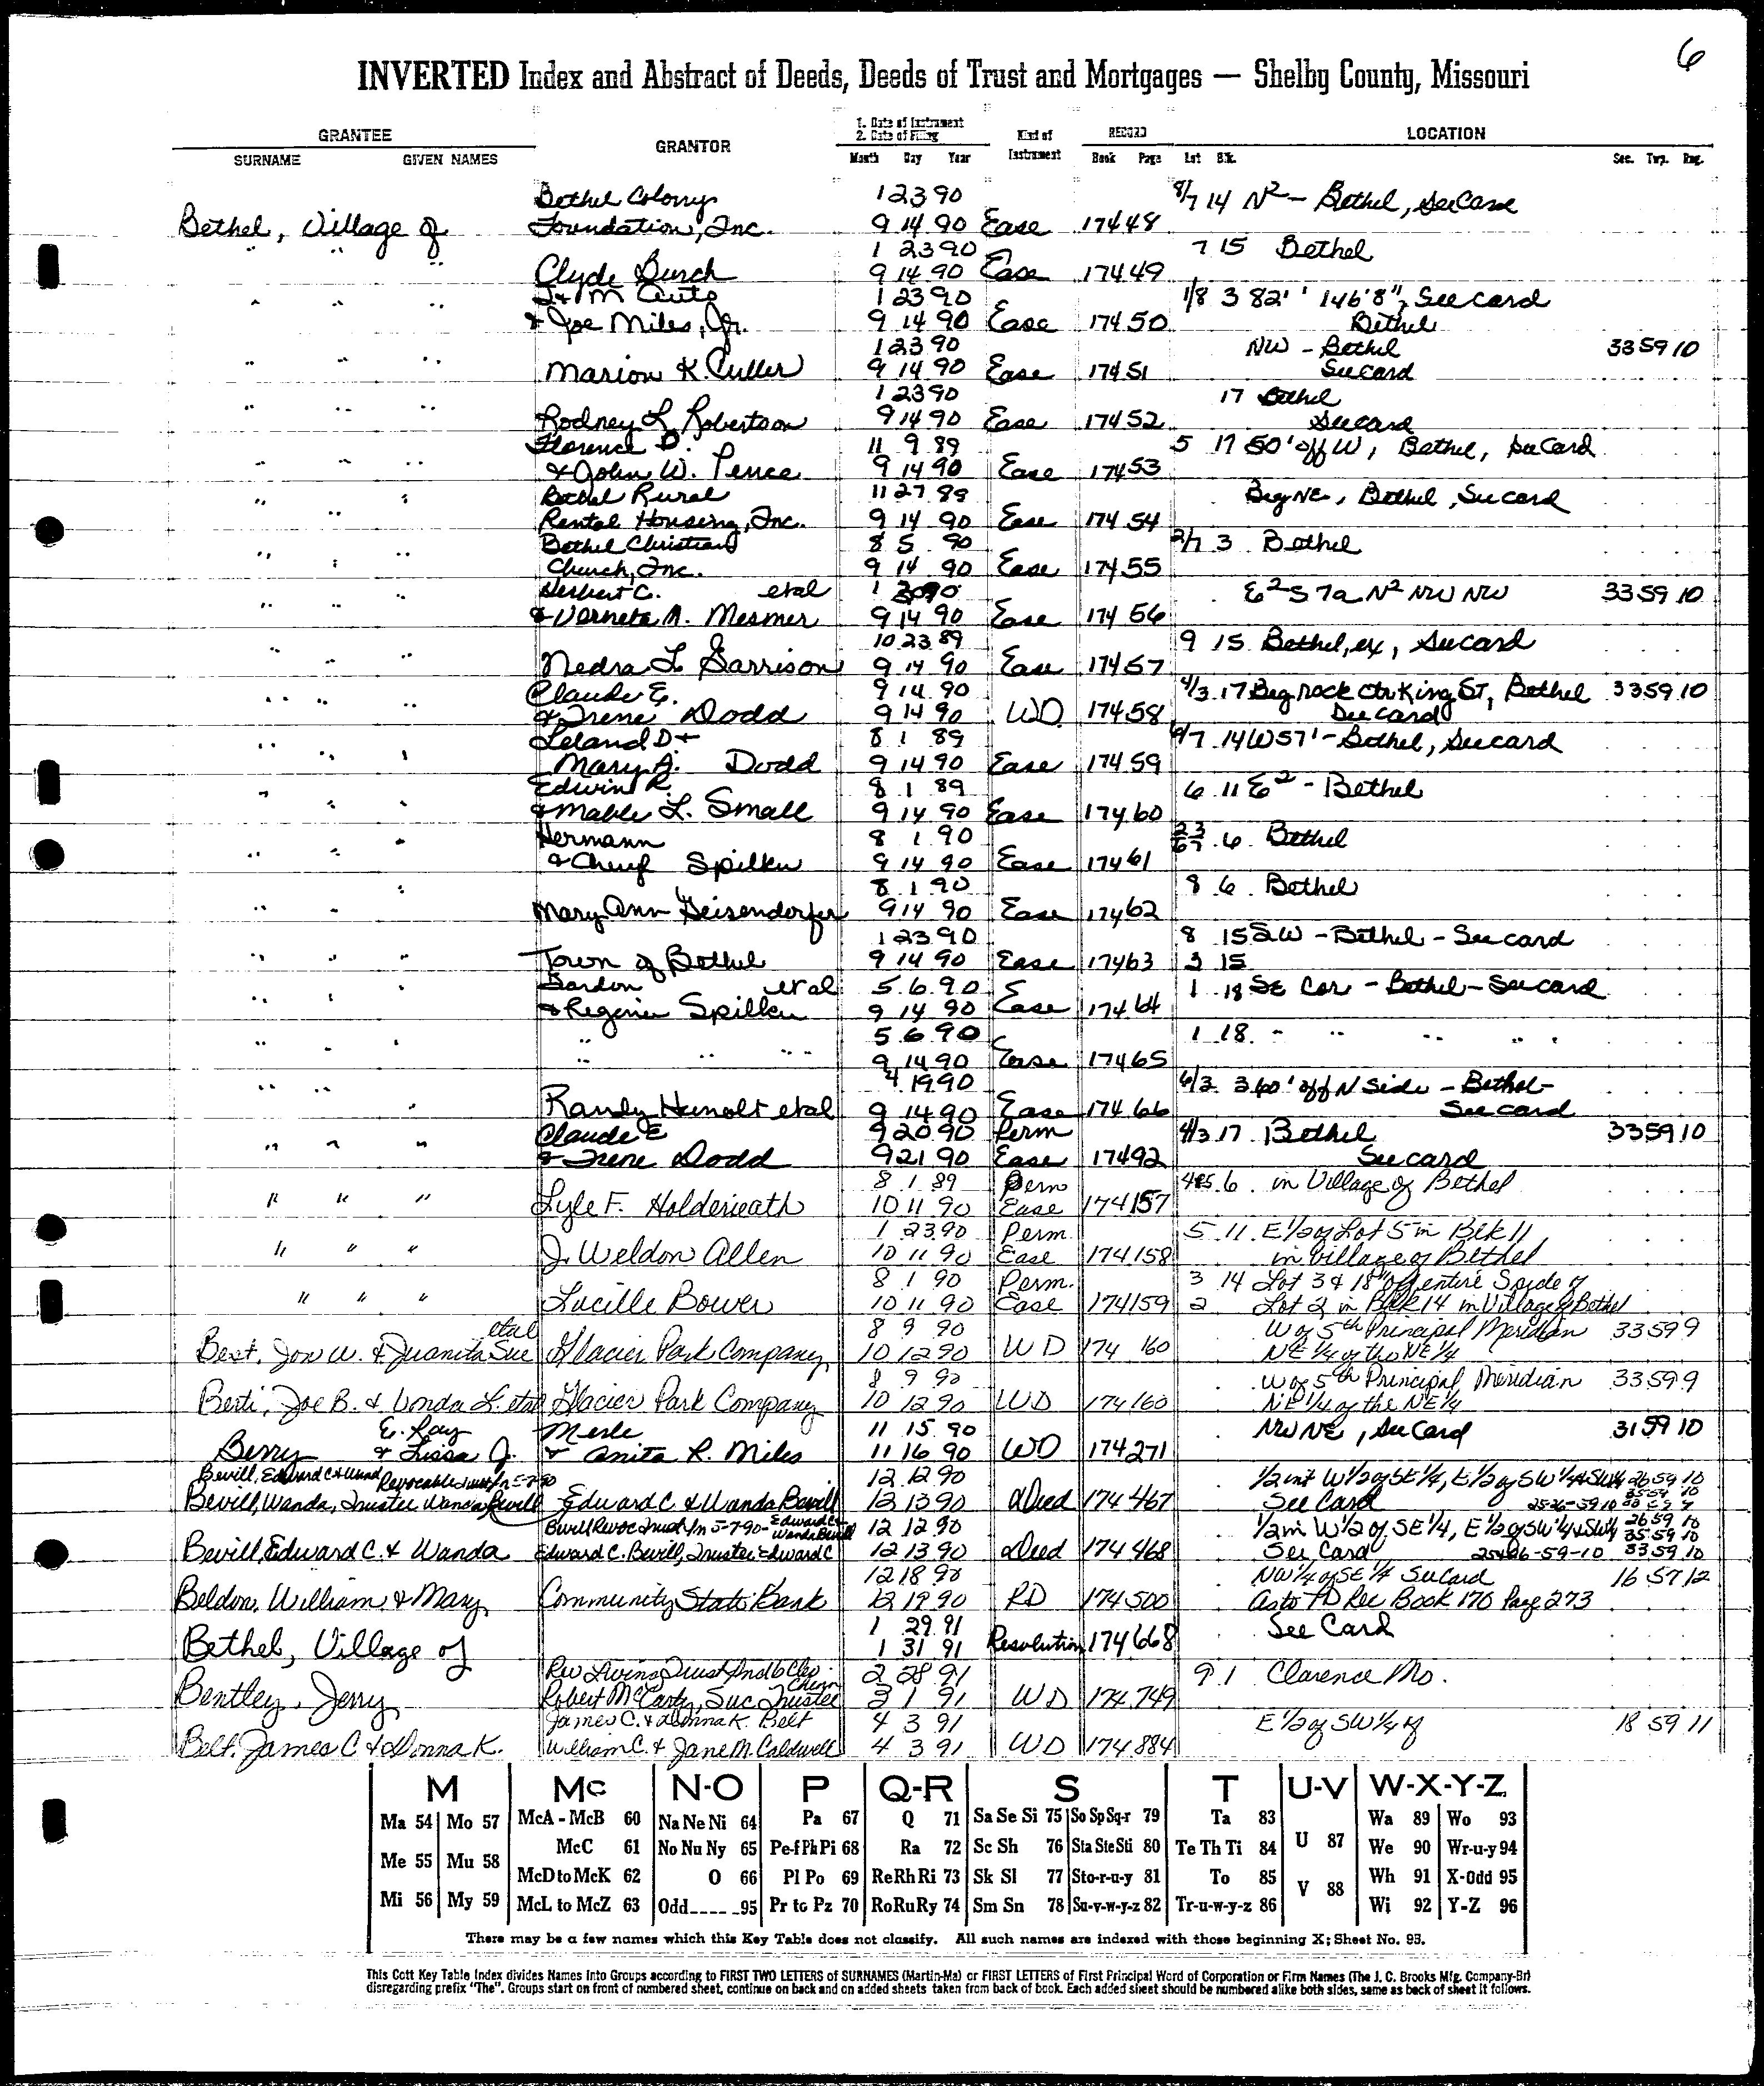 6
INVERTED Index and Abstract of Deeds, Deeds of Trust and Mortgages — Shelby County, Missouri
GRANTEE GRANTOR 1. Date of Instrument 2. Date of Filing Kind of Instrument RECORD LOCATION
SURNAME GIVEN NAMES Month Day Year Book Page Lot Blk. Sec. Twp. Rng.
Bethel Colony 1 23 90 8/7 14 N2 - Bethel, See Card
Bethel, Village of Foundation, Inc. 9 14 90 Ease 174 48
" " " 1 23 90 7 15 Bethel
Clyde Burch 9 14 90 Ease 174 49
" " " J & M Auto 1 23 90 1/8 3 82' 146'8", See card
& Joe Miles, Jr. 9 14 90 Ease 174 50 Bethel
" " " 1 23 90 NW - Bethel 33 59 10
Marion K. Culler 9 14 90 Ease 174 51 See card
" " " 1 23 90 17 Bethel
Rodney L Robertson 9 14 90 Ease 174 52 See card
Florence D. 11 9 89 5 17 50' off W, Bethel, See Card
" " " & John W. Pence 9 14 90 Ease 174 53
" " " Bethel Rural 11 27 89 Beg NE, Bethel, See card
Rental Housing, Inc. 9 14 90 Ease 174 54
Bethel Christian 8 5 90 2/7 3 Bethel
" " " Church, Inc. 9 14 90 Ease 174 55
Herbert C. etal 1 90 E2 S 7a N2 NW NW 33 59 10
" " " & Verneta M. Mesmer 9 14 90 Ease 174 56
" " " 10 23 89 9 15 Bethel, ex, See card
Nedra L Garrison 9 14 90 Ease 174 57
Claude E. 9 14 90 4/3 17 Beg rock ctr King ST, Bethel 33 59 10
" " " & Irene Dodd 9 14 90 WD 174 58 See card
Leland D & 8 1 89 /7 14 W 57' - Bethel, See card
" " " Mary A. Dodd 9 14 90 Ease 174 59
Edwin R. 8 1 89 6 11 E2 - Bethel
" " " & Mable L. Small 9 14 90 Ease 174 60
Hermann 8 1 90 23 67 6 Bethel
" " " & Cheryl Spilker 9 14 90 Ease 174 61
" " " 8 1 90 8 6 Bethel
Mary Ann Geisendorfer 9 14 90 Ease 174 62
1 23 90 8 15 SW - Bethel - See card
" " " Town of Bethel 9 14 90 Ease 174 63 3 15
Gordon etal 5 6 90 1 18 SE Cor - Bethel - See card
" " " & Regina Spilker 9 14 90 Ease 174 64
" " " 5 6 90 1 18 " " " "
" " " 9 14 90 Ease 174 65
" " " 4 19 90 6/2 3 60' off N Side - Bethel -
Randy Hunolt etal 9 14 90 Ease 174 66 See card
Claude E 9 20 90 Perm 4/3 17 Bethel 33 59 10
" " " & Irene Dodd 9 21 90 Ease 174 92 See card
8 1 89 Perm 4&5 6 in Village of Bethel
" " " Lyle F. Holderieath 10 11 90 Ease 174 157
1 23 90 Perm 5 11 E 1/2 of Lot 5 in Blk 11
" " " J. Weldon Allen 10 11 90 Ease 174 158 in Village of Bethel
8 1 90 Perm. 3 14 Lot 3 & 18" off entire S side of
" " " Lucille Bower 10 11 90 Ease 174 159 2 Lot 2 in Blk 14 in Village of Bethel
etal 8 9 90 W of 5th Principal Meridian 33 59 9
Best, Jon W. & Juanita Sue Glacier Park Company 10 12 90 WD 174 160 NE 1/4 of the NE 1/4
8 9 90 W of 5th Principal Meridian 33 59 9
Berti, Joe B. & Vonda L. etal Glacier Park Company 10 12 90 WD 174 160 NE 1/4 of the NE 1/4
E. Ray Merle 11 15 90 NW NE, See Card 31 59 10
Berry & Lissa J. & Anita R. Miles 11 16 90 WD 174 271
Bevill, Edward C & Wanda Revocable Trust In 5-7-90 12 12 90 1/2 int W 1/2 of SE 1/4, E 1/2 of SW 1/4 & SW 1/4 26 59 10
Bevill, Wanda, Trustee Wanda Bevill Edward C. & Wanda Bevill 12 13 90 QDeed 174 467 See Card 25-26-59 10
Bevill Revoc Trust In 5-7-90 - Edward C & Wanda Bevill 12 12 90 1/2 in W 1/2 of SE 1/4, E 1/2 of SW 1/4 & SW 1/4 26 59 10 35 59 10
Bevill, Edward C. & Wanda Edward C. Bevill, Trustee Edward C 12 13 90 QDeed 174 468 See Card 25&26-59-10 33 59 10
12 18 90 NW 1/4 of SE 1/4 See Card 16 57 12
Beldon, William & Mary Community State Bank 12 19 90 RD 174 500 As to TD Rec Book 170 Page 273
1 29 91 See Card
Bethel, Village of 1 31 91 Resolution 174 668
Rev Living Trust Ind 6 Cleo Chinn 2 28 91 9 1 Clarence Mo.
Bentley, Jerry Robert McCarty, Suc Trustee 3 1 91 WD 174 749
James C. & Donna K. Belt 4 3 91 E 1/2 of SW 1/4 of 18 59 11
Belt, James C & Donna K. William C. & Jane M. Caldwell 4 3 91 WD 174 884
M Mc N-O P Q-R S T U-V W-X-Y-Z
Ma 54 Mo 57 McA - McB 60 Na Ne Ni 64 Pa 67 Q 71 Sa Se Si 75 So Sp Sq-r 79 Ta 83 Wa 89 Wo 93
McC 61 No Nu Ny 65 Pe-f Ph Pi 68 Ra 72 Sc Sh 76 Sta Ste Sti 80 Te Th Ti 84 U 87 We 90 Wr-u-y 94
Me 55 Mu 58 McD to McK 62 O 66 Pl Po 69 Re Rh Ri 73 Sk Sl 77 Sto-r-u-y 81 To 85 V 88 Wh 91 X-Odd 95
Mi 56 My 59 McL to McZ 63 Odd____95 Pr to Pz 70 Ro Ru Ry 74 Sm Sn 78 Su-v-w-y-z 82 Tr-u-w-y-z 86 Wi 92 Y-Z 96
There may be a few names which this Key Table does not classify. All such names are indexed with those beginning X; Sheet No. 95.
This Cott Key Table Index divides Names into Groups according to FIRST TWO LETTERS of SURNAMES (Martin-Ma) or FIRST LETTERS of First Principal Word of Corporation or Firm Names (The J. C. Brooks Mfg. Company-Br)
disregarding prefix "The". Groups start on front of numbered sheet, continue on back and on added sheets taken from back of book. Each added sheet should be numbered alike both sides, same as back of sheet it follows.